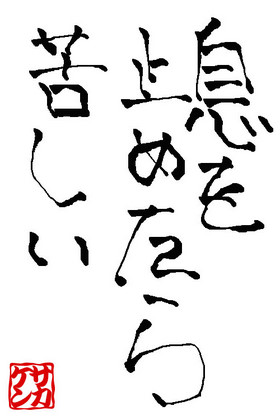 息を
止めたら
苦しい
サカケン